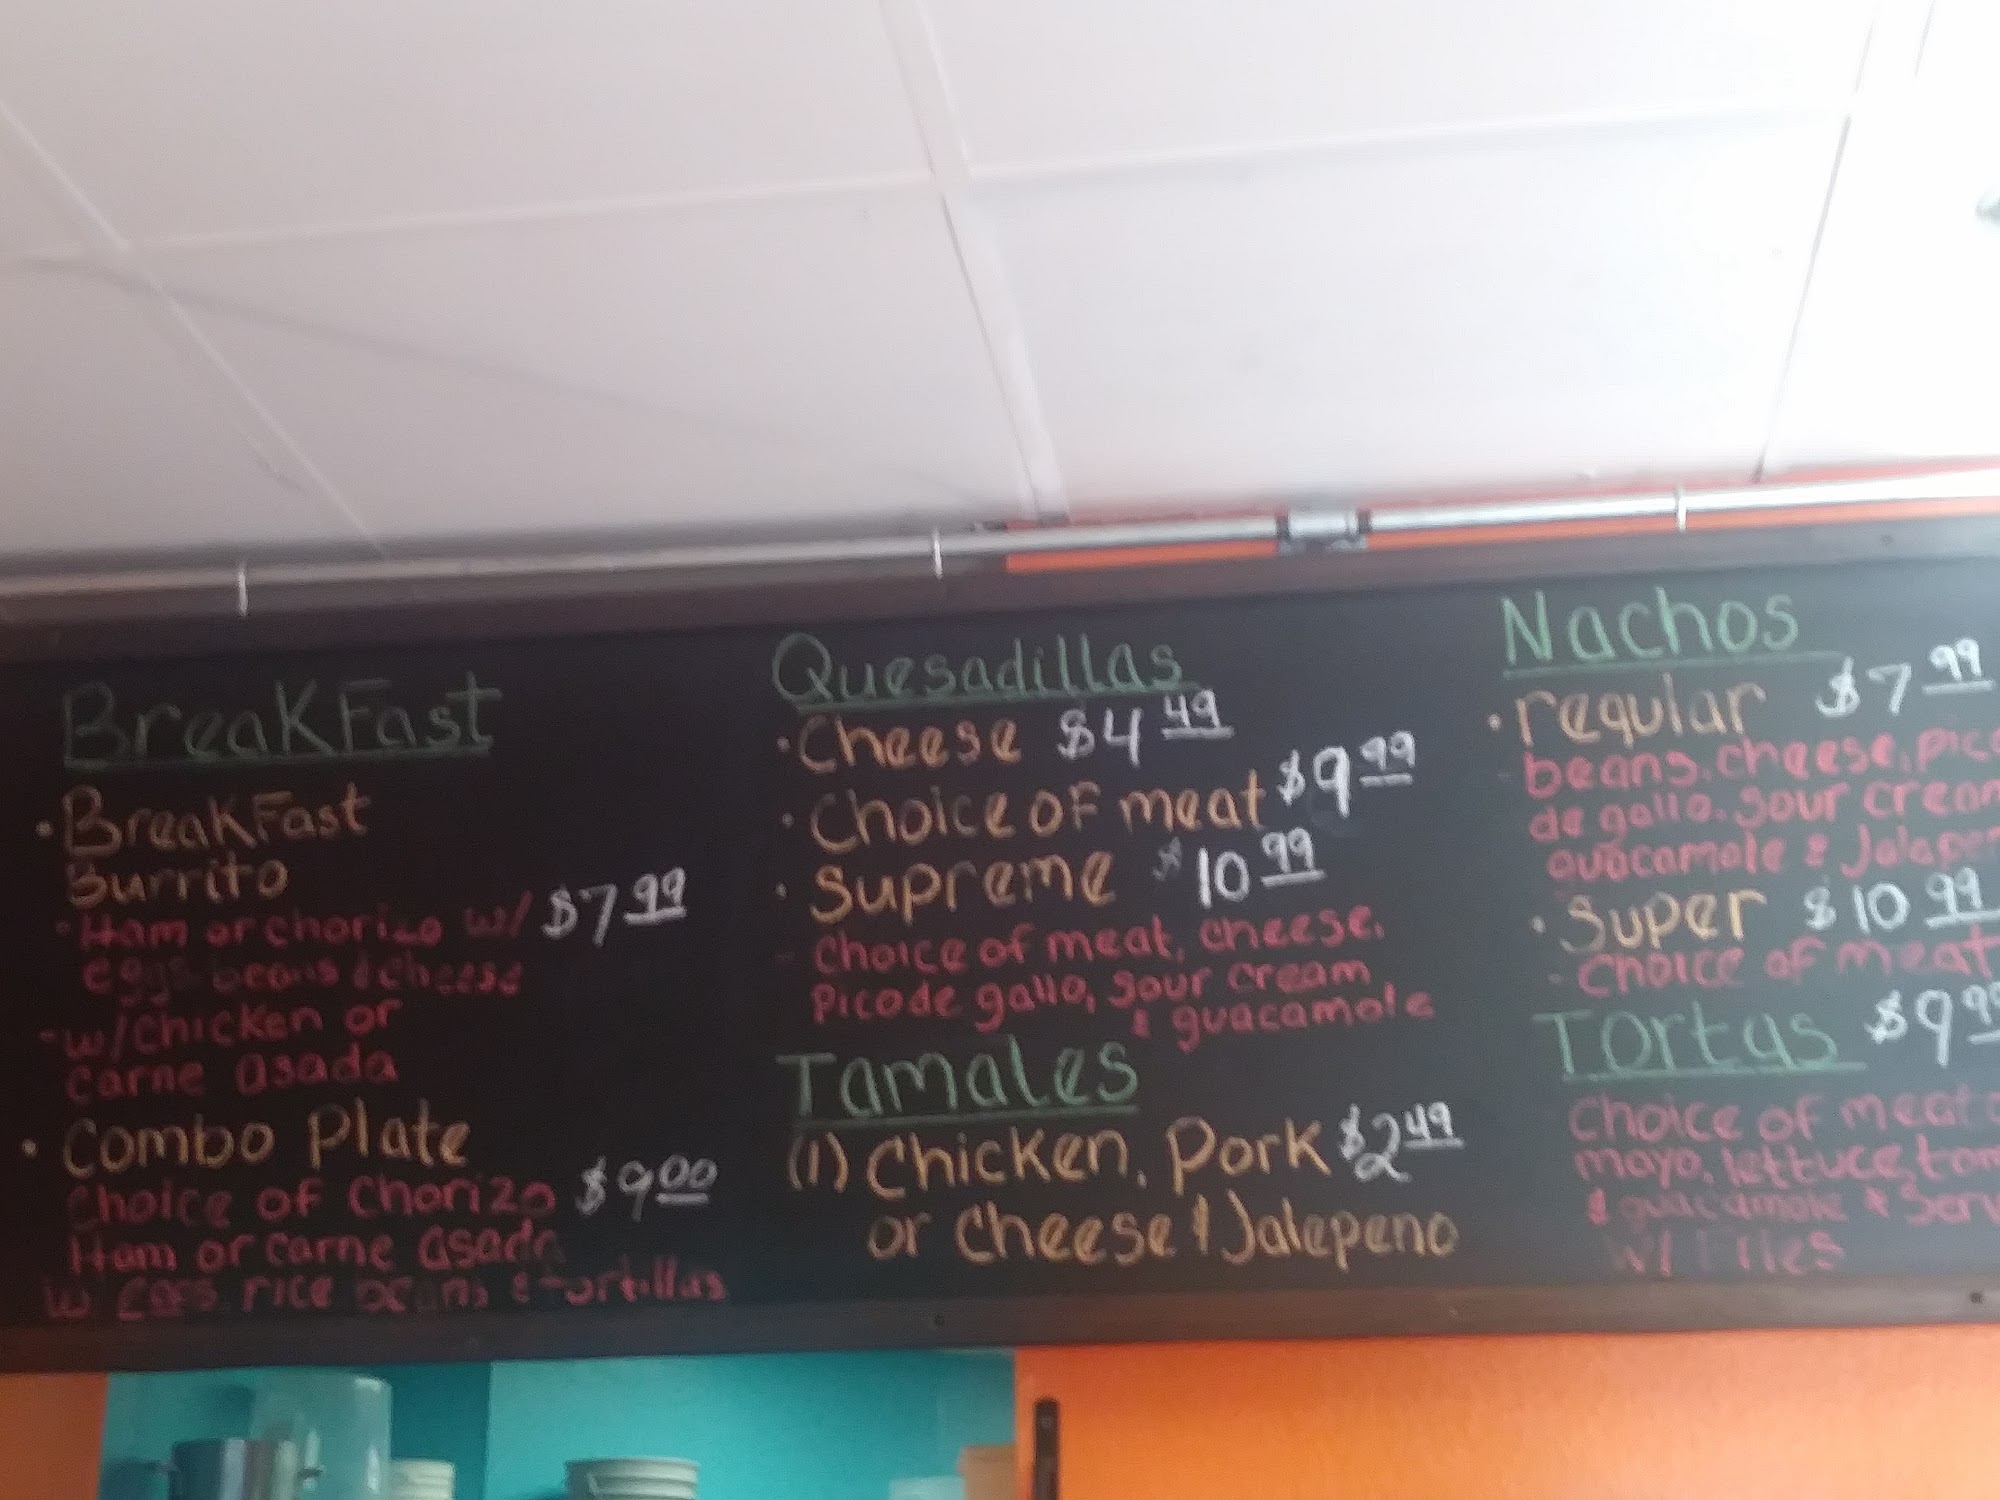 BreakFast
• BreakFast
Burrito
- Ham or chorizo w/ $7 99
eggs beans & cheese
- w/chicken or
carne asada
• Combo Plate
Choice of Chorizo $9 00
Ham or carne asada
w/ eggs rice beans & tortillas
Quesadillas
• Cheese $4 49
• Choice of meat $9 99
• Supreme $10 99
- Choice of meat, cheese,
Pico de gallo, sour cream
& guacamole
Tamales
(1) Chicken, Pork $2 49
or Cheese & Jalapeno
Nachos
• regular $7 99
- beans, cheese, pico
de gallo, sour cream
guacamole & Jalapen
• Super $10 99
- Choice of meat
Tortas $9 99
Choice of meat
mayo, lettuce, tom
& guacamole & Serv
w/ Fries